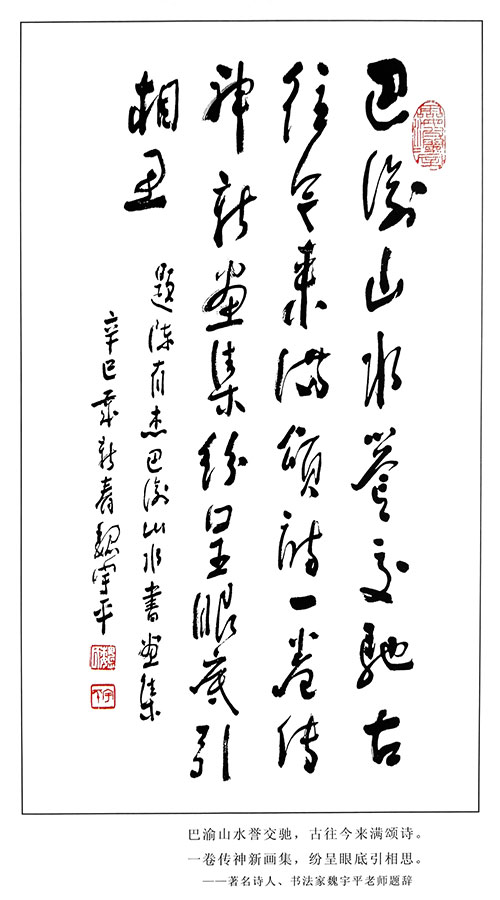 巴渝山水譽交馳古
往今來滿頌詩一卷傳
神新畫集紛呈眼底引
相思
題陳有杰巴渝山水書畫集
辛巳歲新春魏宇平
巴渝山水誉交驰，古往今来满颂诗。
一卷传神新画集，纷呈眼底引相思。
——著名诗人、书法家魏宇平老师题辞